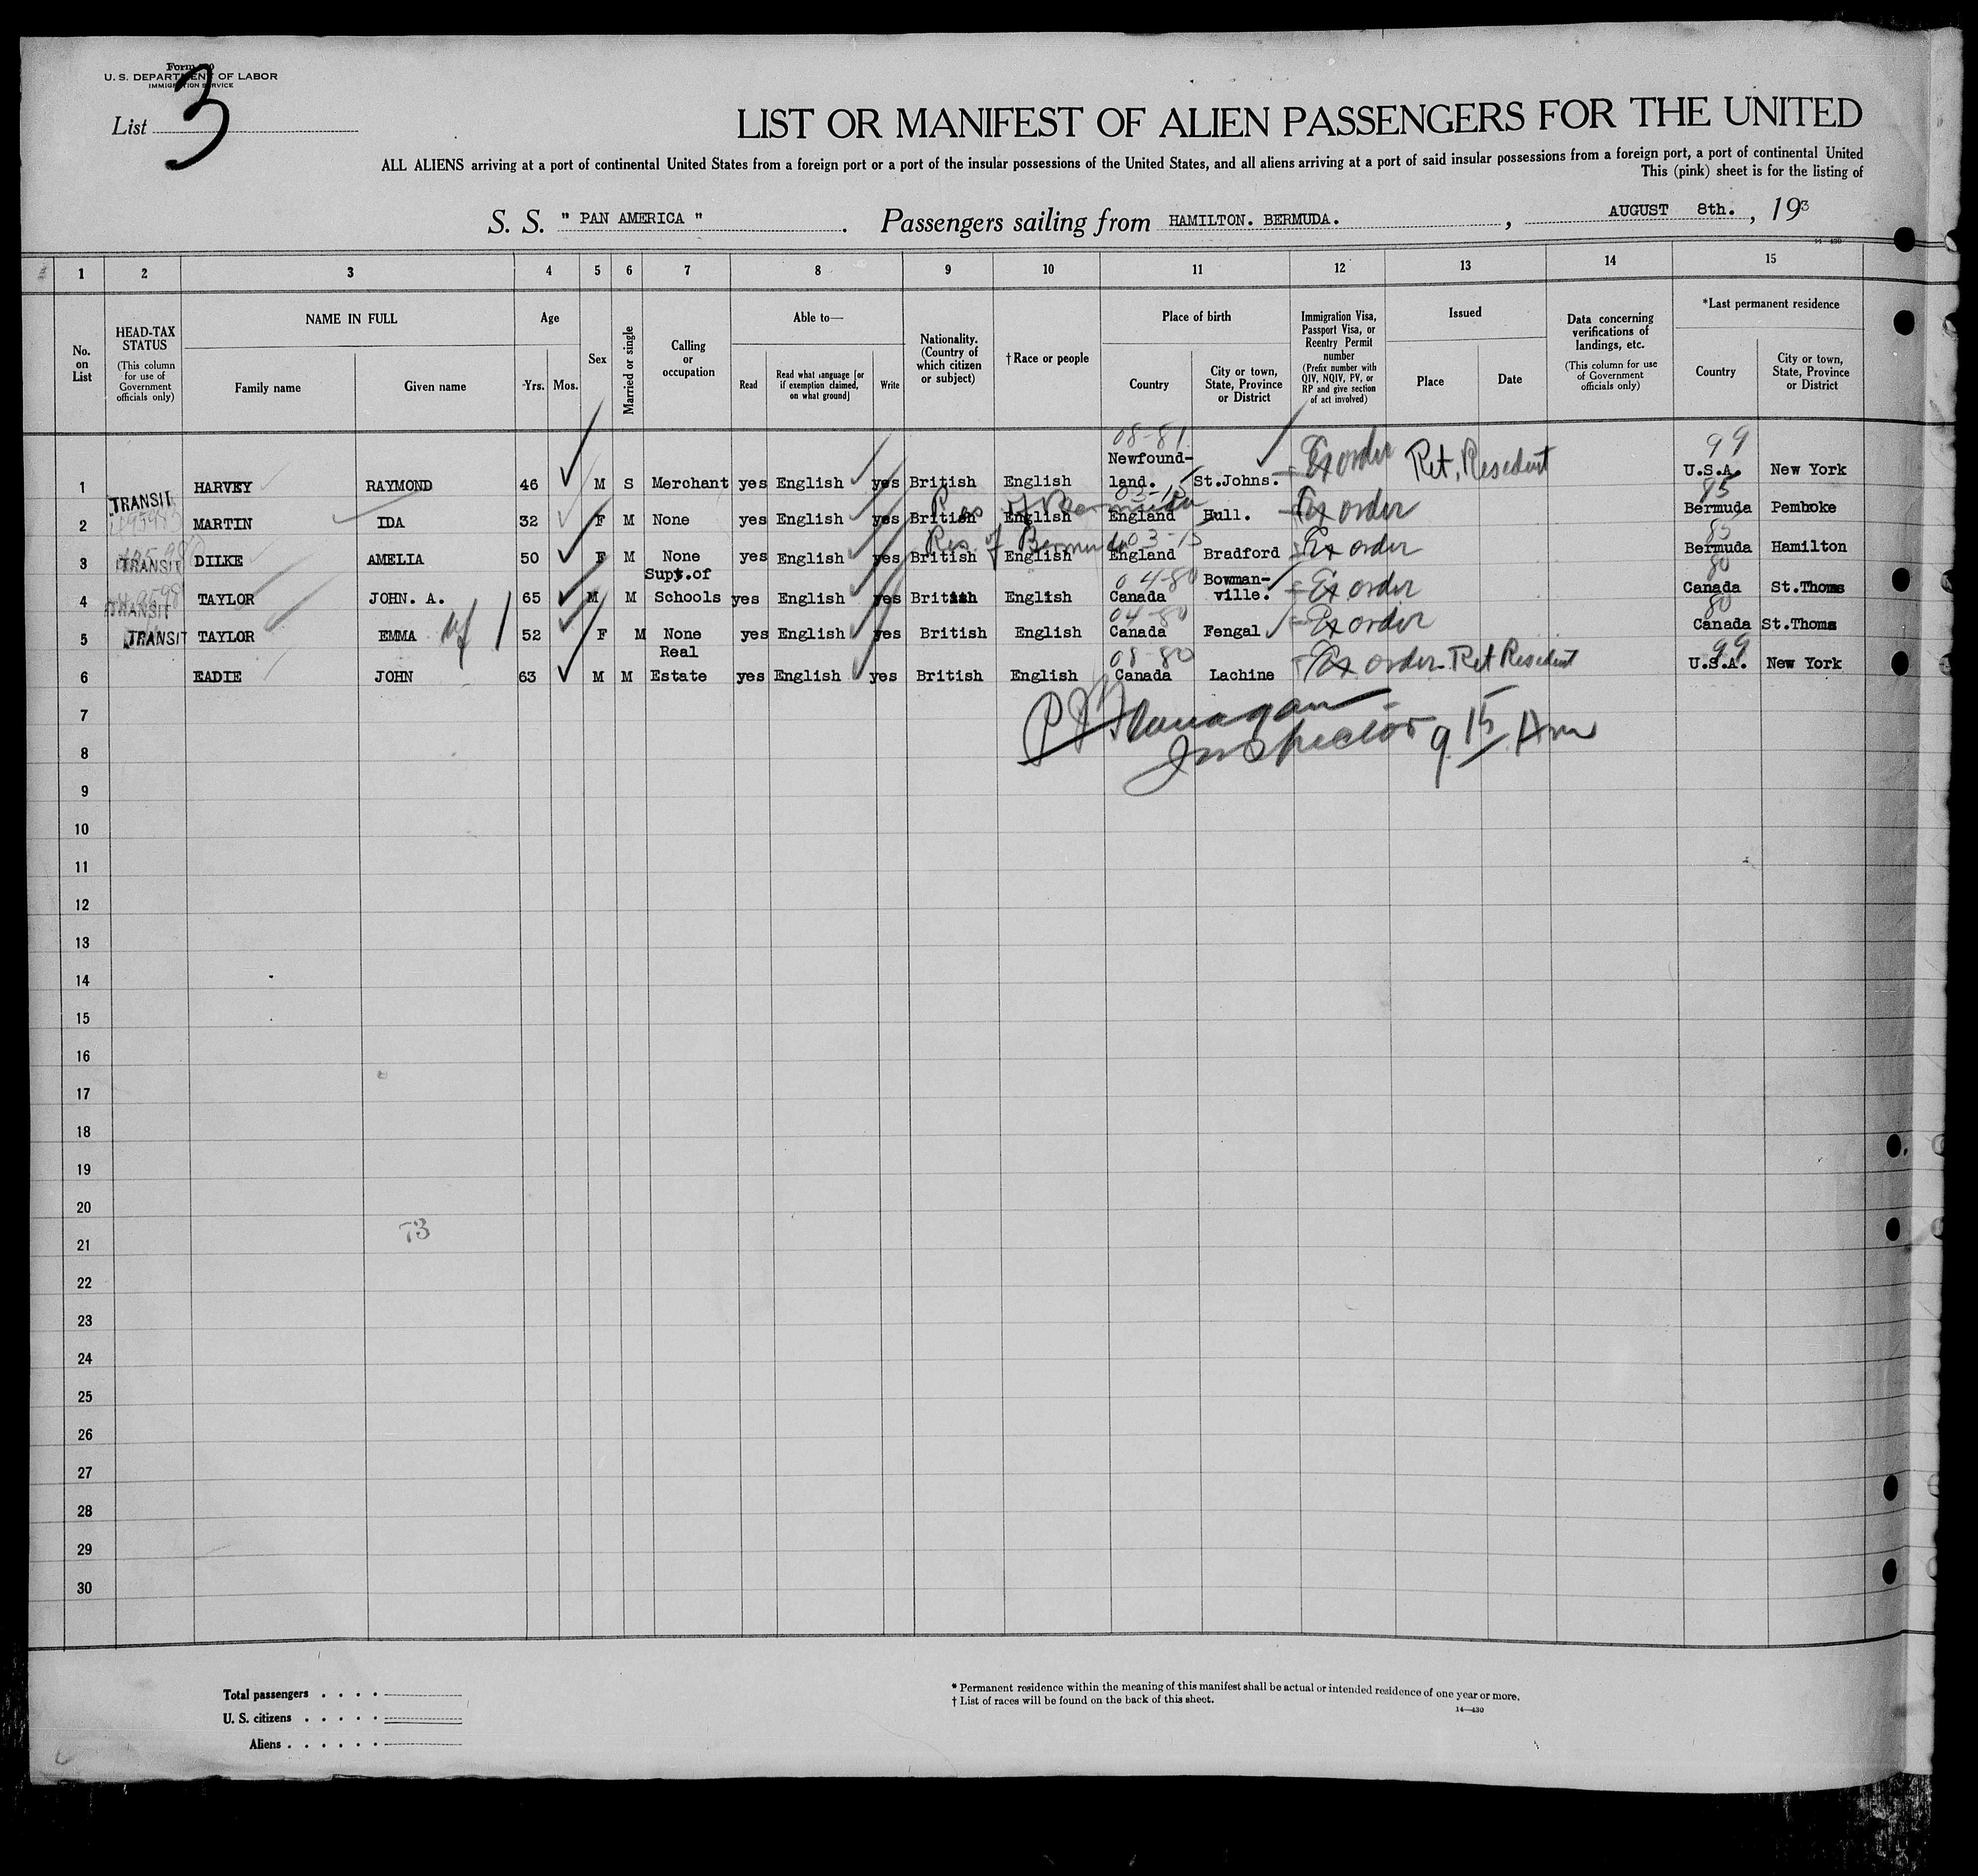 Form 500
U. S. DEPARTMENT OF LABOR
IMMIGRATION SERVICE
List 3
LIST OR MANIFEST OF ALIEN PASSENGERS FOR THE UNITED
ALL ALIENS arriving at a port of continental United States from a foreign port or a port of the insular possessions of the United States, and all aliens arriving at a port of said insular possessions from a foreign port, a port of continental United
This (pink) sheet is for the listing of
S. S. " PAN AMERICA ". Passengers sailing from HAMILTON. BERMUDA., AUGUST 8th., 193
14—430
1 2 3 4 5 6 7 8 9 10 11 12 13 14 15
No. on List
HEAD-TAX STATUS
(This column for use of Government officials only)
NAME IN FULL
Family name
Given name
Age
Yrs. Mos.
Sex
Married or single
Calling or occupation
Able to—
Read
Read what language [or if exemption claimed, on what ground]
Write
Nationality. (Country of which citizen or subject)
†Race or people
Place of birth
Country
City or town, State, Province or District
Immigration Visa, Passport Visa, or Reentry Permit number
(Prefix number with QIV, NQIV, PV, or RP and give section of act involved)
Issued
Place
Date
Data concerning verifications of landings, etc.
(This column for use of Government officials only)
*Last permanent residence
Country
City or town, State, Province or District
08-81 99
1 HARVEY RAYMOND 46 M S Merchant yes English yes British English Newfound-land. St.Johns. Ex order Ret. Resident U.S.A. New York
Res of Bermuda 03-15 85
2 TRANSIT MARTIN IDA 32 F M None yes English yes British English England Hull. Ex order Bermuda Pemboke
Res. of Bermuda 03-15 85
3 TRANSIT DILKE AMELIA 50 F M None yes English yes British English England Bradford Ex order Bermuda Hamilton
04-80 80
4 TRANSIT TAYLOR JOHN. A. 65 M M Supt.of Schools yes English yes British English Canada Bowman-ville. Ex order Canada St.Thoms
04-80 80
5 TRANSIT TAYLOR EMMA wf 52 F M None yes English yes British English Canada Fengal Ex order Canada St.Thoms
08-80 99
6 EADIE JOHN 63 M M Real Estate yes English yes British English Canada Lachine Ex order Ret Resident U.S.A. New York
7
P J Flanagan
8
Inspector 9 15 Am
9
10
11
12
13
14
15
16
17
18
19
20
73
21
22
23
24
25
26
27
28
29
30
Total passengers . . . .
U. S. citizens . . . . .
Aliens . . . . . .
* Permanent residence within the meaning of this manifest shall be actual or intended residence of one year or more.
† List of races will be found on the back of this sheet.
14—430